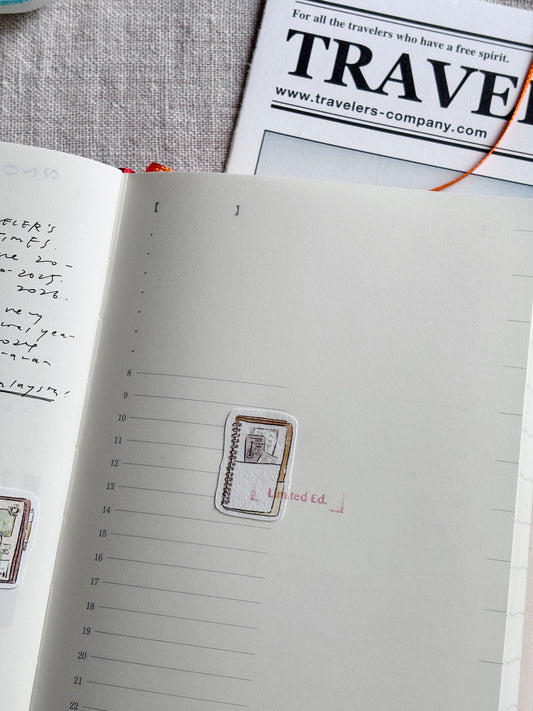 For all the travelers who have a free spirit.
TRAVEL
www.travelers-company.com
TIMES.
20-
2025.
2026.
year-
[ ]
8
9
10
11
12
13
14
15
16
17
18
19
20
21
22
Limited Ed.